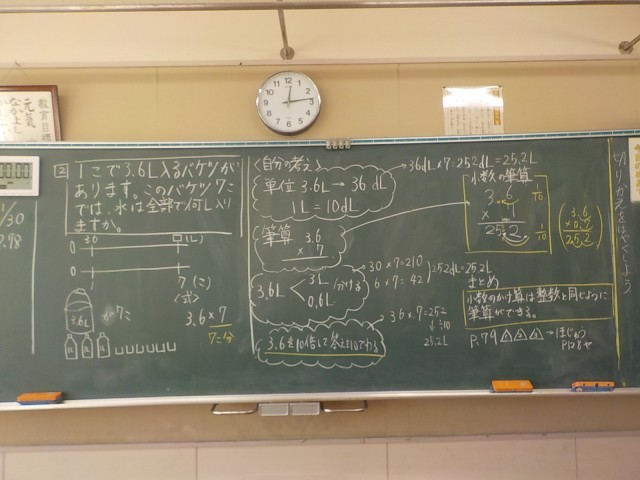 教育目標
元気
1/30
12
1
2
3
4
5
6
7
8
9
10
11
② 1こで3.6L入るバケツが
あります。このバケツ7こ
では、水は全部で何L入り
ますか。
0 3.6 □(L)
0 1 7(こ)
3.6L
が7こ
<式>
3.6×7
7こ分
<自分の考え>
単位 3.6L→36dL
1L=10dL
36dL×7=252dL=25.2L
筆算 3.6
×7
3.6L<3L
0.6L
分ける
30×7=210
6×7=42
252dL=25.2L
3.6を10倍して答えを10でわる
36×7=252
↓÷10
25.2L
小数の筆算
3.6
×7
25.2
1/10
1/10
3.6
×0.7
25.2
まとめ
小数のかけ算は整数と同じように
筆算ができる。
P.79 △△△→ほじゅう
P128
切りかえをはやくしよう